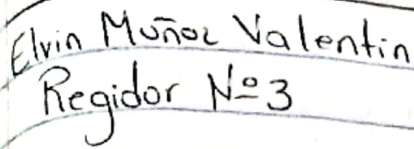 Elvin Muñoz Valentin
Regidor Nº3